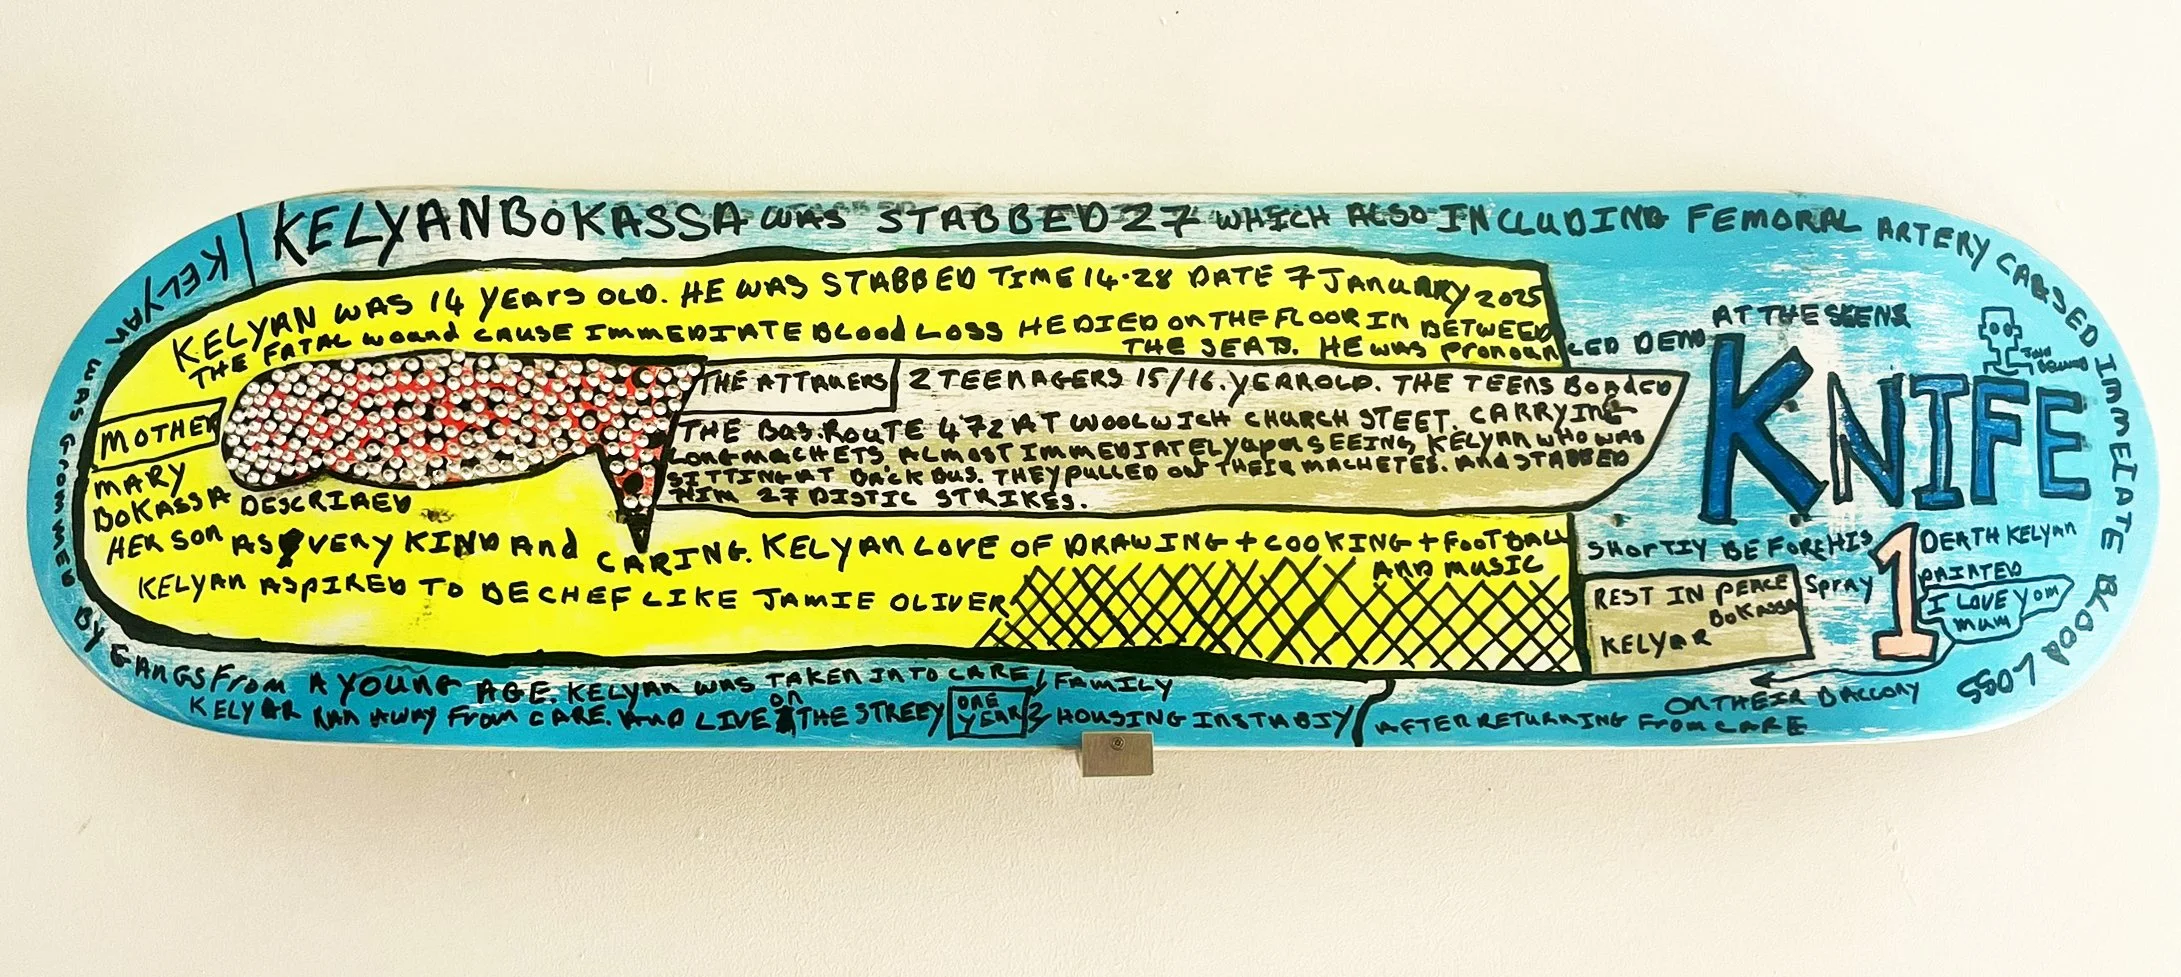 KELYANBOKASSA WAS STABBED 27 WHICH ALSO INCLUDING FEMORAL ARTERY CABSED IMMEIATE BLOOD LOSS
KELYAN WAS GROMMED BY GANGS FROM A YOUNG AGE. KELYAN WAS TAKEN INTO CARE
KELYAN WAS 14 YEARS OLD. HE WAS STABBED TIME 14.28 DATE 7 JANUARY 2025
THE FATAL WOUND CAUSE IMMEDIATE BLOOD LOSS HE DIED ON THE FLOOR IN BETWEED
THE SEATS. HE WAS PRONOUNCED DEAD
AT THE SEENS
THE ATTAKERS 2 TEENAGERS 15/16.YEAROLD. THE TEENS BOADED
THE BUS.ROUTE 472 AT WOOLWICH CHURCH STEET. CARRYING
LONG MACHETS ALMOST IMMEDIATELY UPON SEEING, KELYAN WHO WAS
SITTING AT BACK BUS. THEY PULLED OUT THEIR MACHETES. AND STABBED
HIM 27 DISTIC STRIKES.
MOTHER
MARY
BOKASSA DESCRIAED
HER SON AS VERY KIND And CARING. KELYAN LOVE OF DRAWING + COOKING + FOOTBALL
AND MUSIC
KELYAN ASPIRED TO BE CHEF LIKE JAMIE OLIVER
KNIFE
1
SHORTLY BEFORE HIS DEATH KELYAN
Spray PAINTED
I LOVE YOM
MUM
ON THEIR BALCONY
REST IN PEACE
BOKASSA
KELYAR
KELYAR RAN AWAY FROM CARE. AND LIVE ON THE STREEY ONE YEAR
FAMILY
HOUSING INSTABIY
AFTER RETURNING FROM CARE